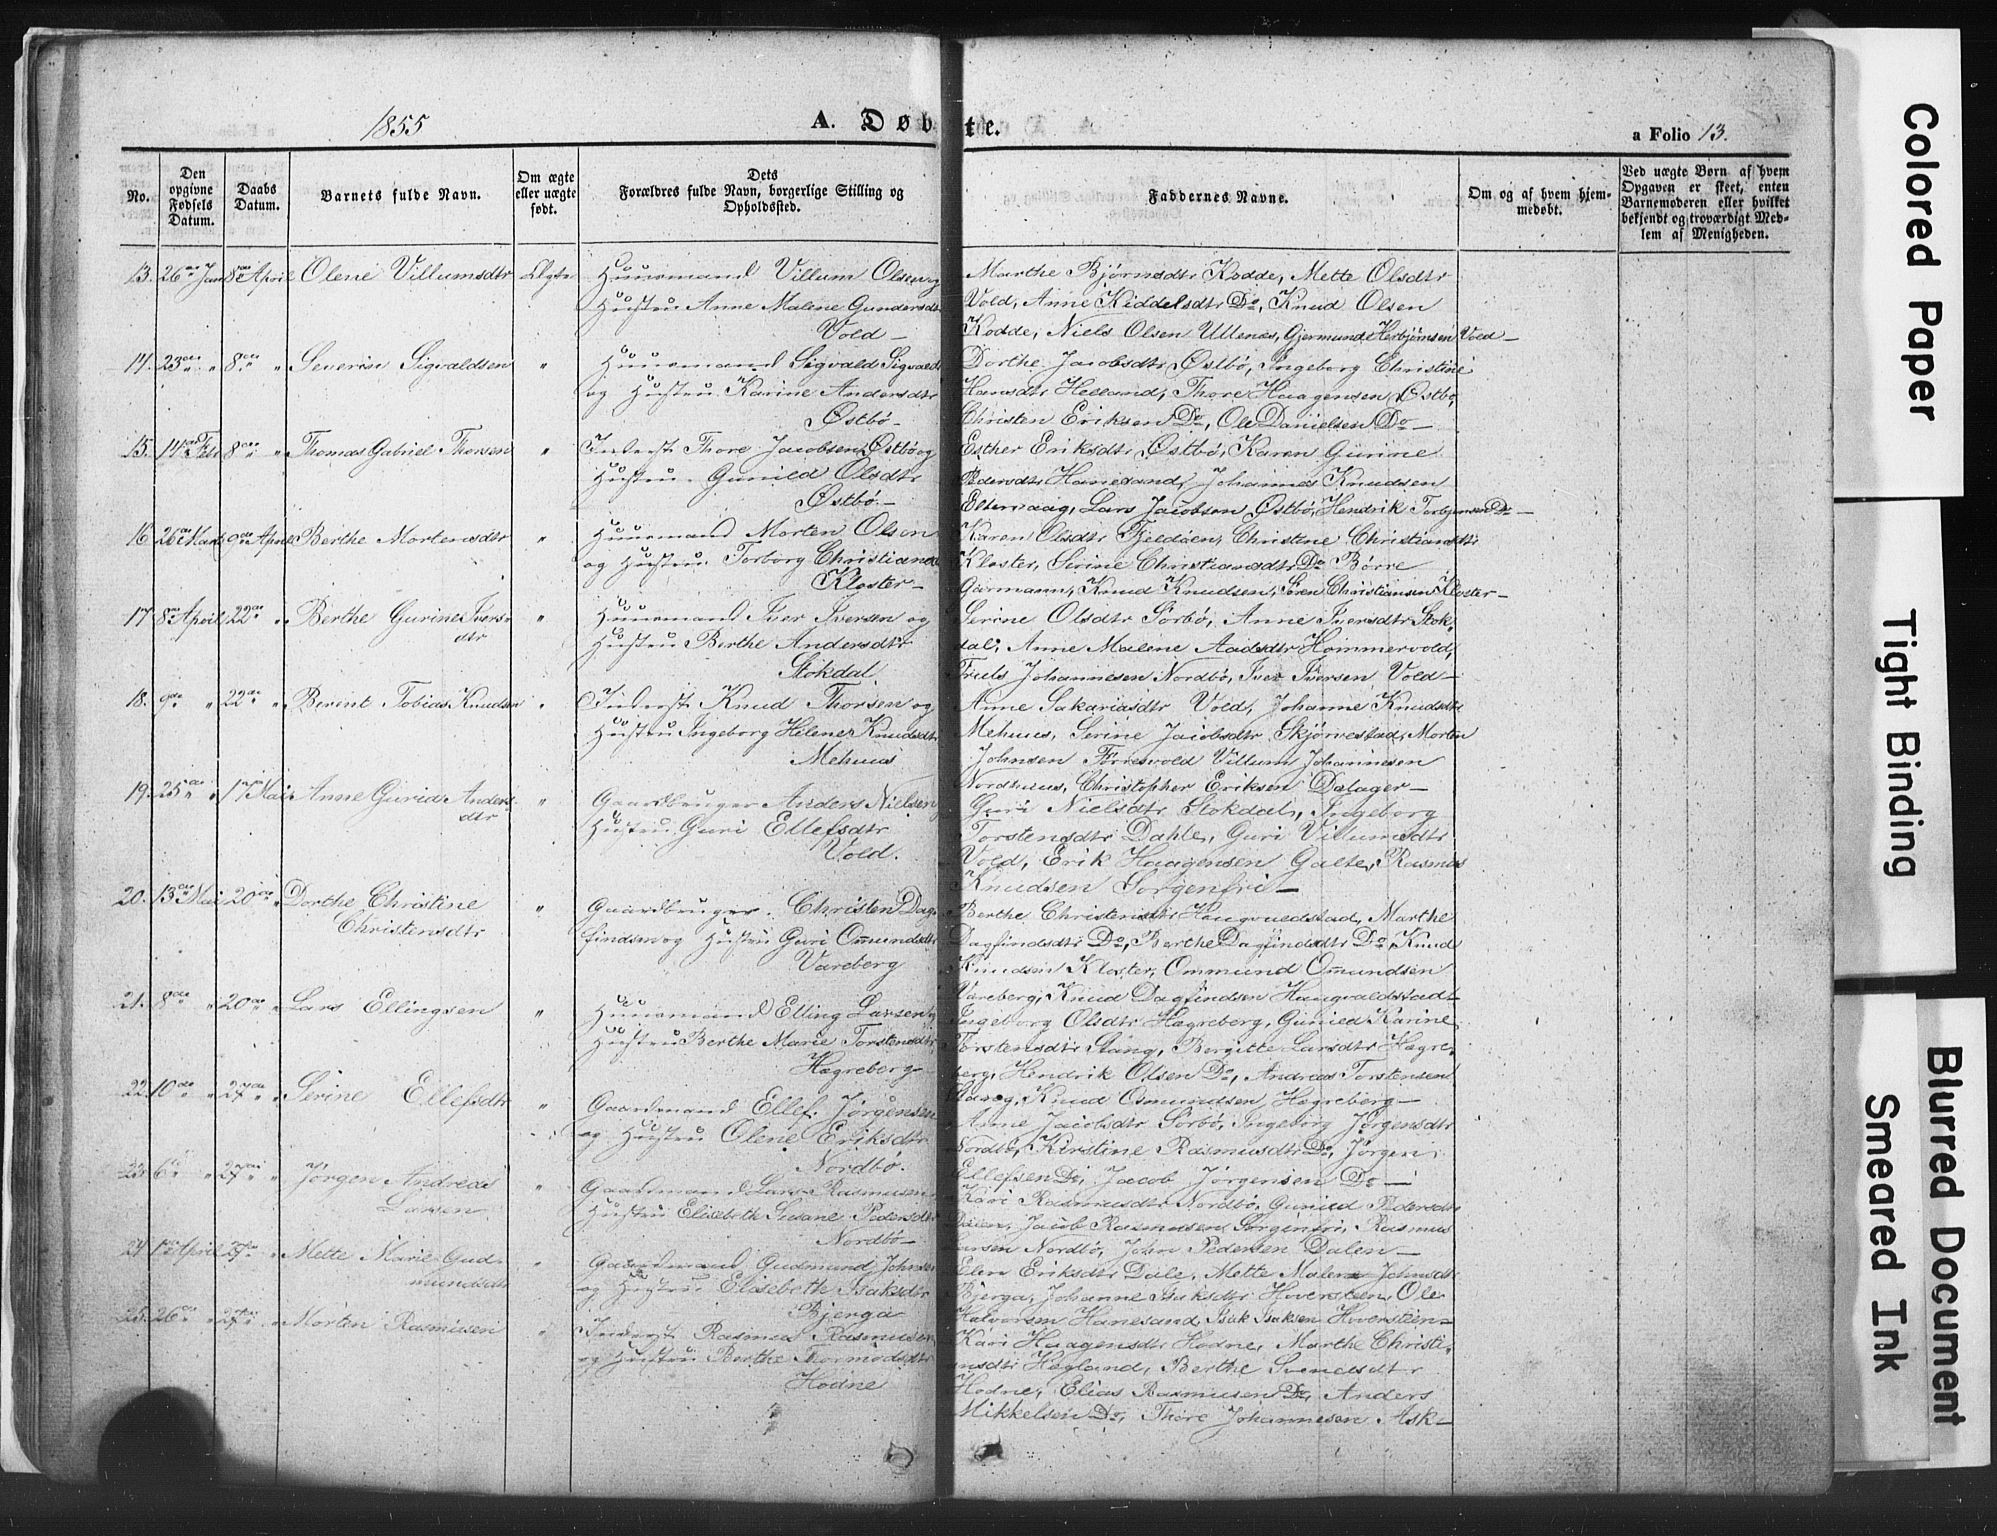 1855
A. Døbte.
a Folio 13.
No.
Den opgivne Fødsels Datum.
Daabs Datum.
Barnets fulde Navn.
Om ægte eller uægte født.
Dets Forældres fulde Navn, borgerlige Stilling og Opholdssted.
Faddernes Navne.
Om og af hvem hjemmedøbt.
Ved uægte Børn af hvem Opgaven er skeet, enten Barnemoderen eller hvilket bekjendt og troværdigt Medlem af Menigheden.
13. 26de Jan 8de April Olene Villumsdtr Ægte Huusmand Villum Olsen og Marthe Bjørnsdtr Kodde, Mette Olsdtr
Hustru Anne Malene Gundersdtr Vold, Anne Kiddelsdtr Do, Knud Olsen
Vold – Kodde, Niels Olsen Ullenes, Gjermund Herbjørnsen Vold –
14. 23de " 8de " Severin Sigvaldsen " Huusmand Sigvald Sigvalds Dorthe Jacobsdtr Østbø, Ingeborg Christine
og Hustru Karine Andersdtr Hansdtr Helland, Thore Haagensen Østbø,
Østbø – Christen Eriksen Do, Ole Danielsen Do –
15. 14de Feb 8de " Thomas Gabriel Thorsen " Inderst Thore Jacobsen Østbø og Esther Eriksdtr Østbø, Karen Gurine
Hustru Gunild Olsdtr Pedersdtr Hanesand, Johannes Knudsen
Østbø. – Eltervaag, Lars Jacobsen Østbø, Hendrik Torbjørnsen Do –
16 26de Marts 9de April Berthe Mortensdtr " Huusmand Morten Olsen Karen Olsdtr Fjeldøen, Christine Christiansdtr
og Hustru Torborg Christiansd Kloster, Serine Christiansdtr Do Børre
Kloster – Gjermann, Knud Knudsen, Søren Christiansen Kloster –
17 8de April 22de " Berthe Gurine Ivers- " Huusmand Iver Iversen og Serine Olsdtr Sørbø, Anne Iversdtr Stok-
dtr Hustru Berthe Andersdtr dal, Anne Malene Aadsdtr Hommervold,
Stokdal Truls Johannesen Nordbø, Iver Iversen Vold –
18. 9de " 22de " Berent Tobias Knudsen " Inderst Knud Thorsen og Anne Sakariasdtr Vold, Johanne Knudsdtr
Hustru Ingeborg Helene Knudsdtr Mehuus, Serine Jacobsdtr Skjørvestad, Morten
Mehuus Johnsen Vold Villum Johannesen
Nordhuus, Christopher Eriksen Dalager –
19. 25de " 17 Mai Anne Gurid Anders- " Gaardbruger Anders Nielsen Guri Nielsdtr Stokdal, Ingeborg
dtr Hustru Guri Ellefsdtr Torstensdtr Dahle, Guri Villumsdtr
Vold. Vold, Erik Haagensen Galte, Rasmus
Knudsen Sorgenfri –
20. 13de Mai 20de " Dorthe Christine " Gaardbruger Christen Dag- Berthe Christensdtr Haugvaldstad, Marthe
Christensdtr findsen og Hustru Guri Omundsdtr Dagfindsdtr Do, Berthe Dagfindsdtr Do Knud
Vareberg Knudsen Kloster, Ommund Omundsen
Vareberg, Knud Dagfindsen Haugvaldstad –
21. 8de " 20de " Lars Ellingsen " Huusmand Elling Larsen og Ingeborg Olsdtr Hægreberg, Gunild Karine
Hustru Berthe Marie Torstensdtr Torstensdtr Stang, Bergitte Larsdtr Hægre-
Hægreberg – berg, Hendrik Olsen Do, Andreas Torstensen
Stang, Knud Osmundsen Hægreberg –
22. 10de " 27de " Serine Ellefsdtr " Gaardmand Ellef Jørgensen Anne Jacobsdtr Sørbø, Ingeborg Jørgensdtr
og Hustru Olene Eriksdtr Nordbø, Kirstine Rasmusdtr Do, Jørgen
Nordbø. Ellefsen Do, Jacob Jørgensen Do –
23. 6te " 27de " Jørgen Andreas " Gaardmand Lars Rasmusen Kari Rasmusdtr Nordbø, Gunild Pedersdtr
Larsen Hustru Elisebeth Susane Pedersdtr Dalen, Jacob Rasmusen Sorgenfri, Rasmus
Nordbø – Larsen Nordbø, John Pedersen Dalen –
24. 1ste April 27de " Mette Marie Gud- " Gaardmand Gudmund Johnsen Elen Eriksdtr Dale, Mette Malene Johnsdtr
mundsdtr og Hustru Elisebeth Isaksdtr Bjerga, Johanne Isaksdtr Hoversteen, Ole
Bjerga Halvorsen Hanesand, Isak Isaksen Hoversteen –
25. 26de " 27de " Morten Rasmusen " Inderst Rasmus Rasmusen Kari Haagensdtr Hodne, Marthe Christi-
og Hustru Berthe Thormodsdtr ansdtr Høgland, Berthe Svendsdtr
Hodne Hodne, Elias Rasmusen Do, Anders
Mikkelsen Do, Thore Johannesen Ask –
Colored Paper
Tight Binding
Blurred Document
Smeared Ink